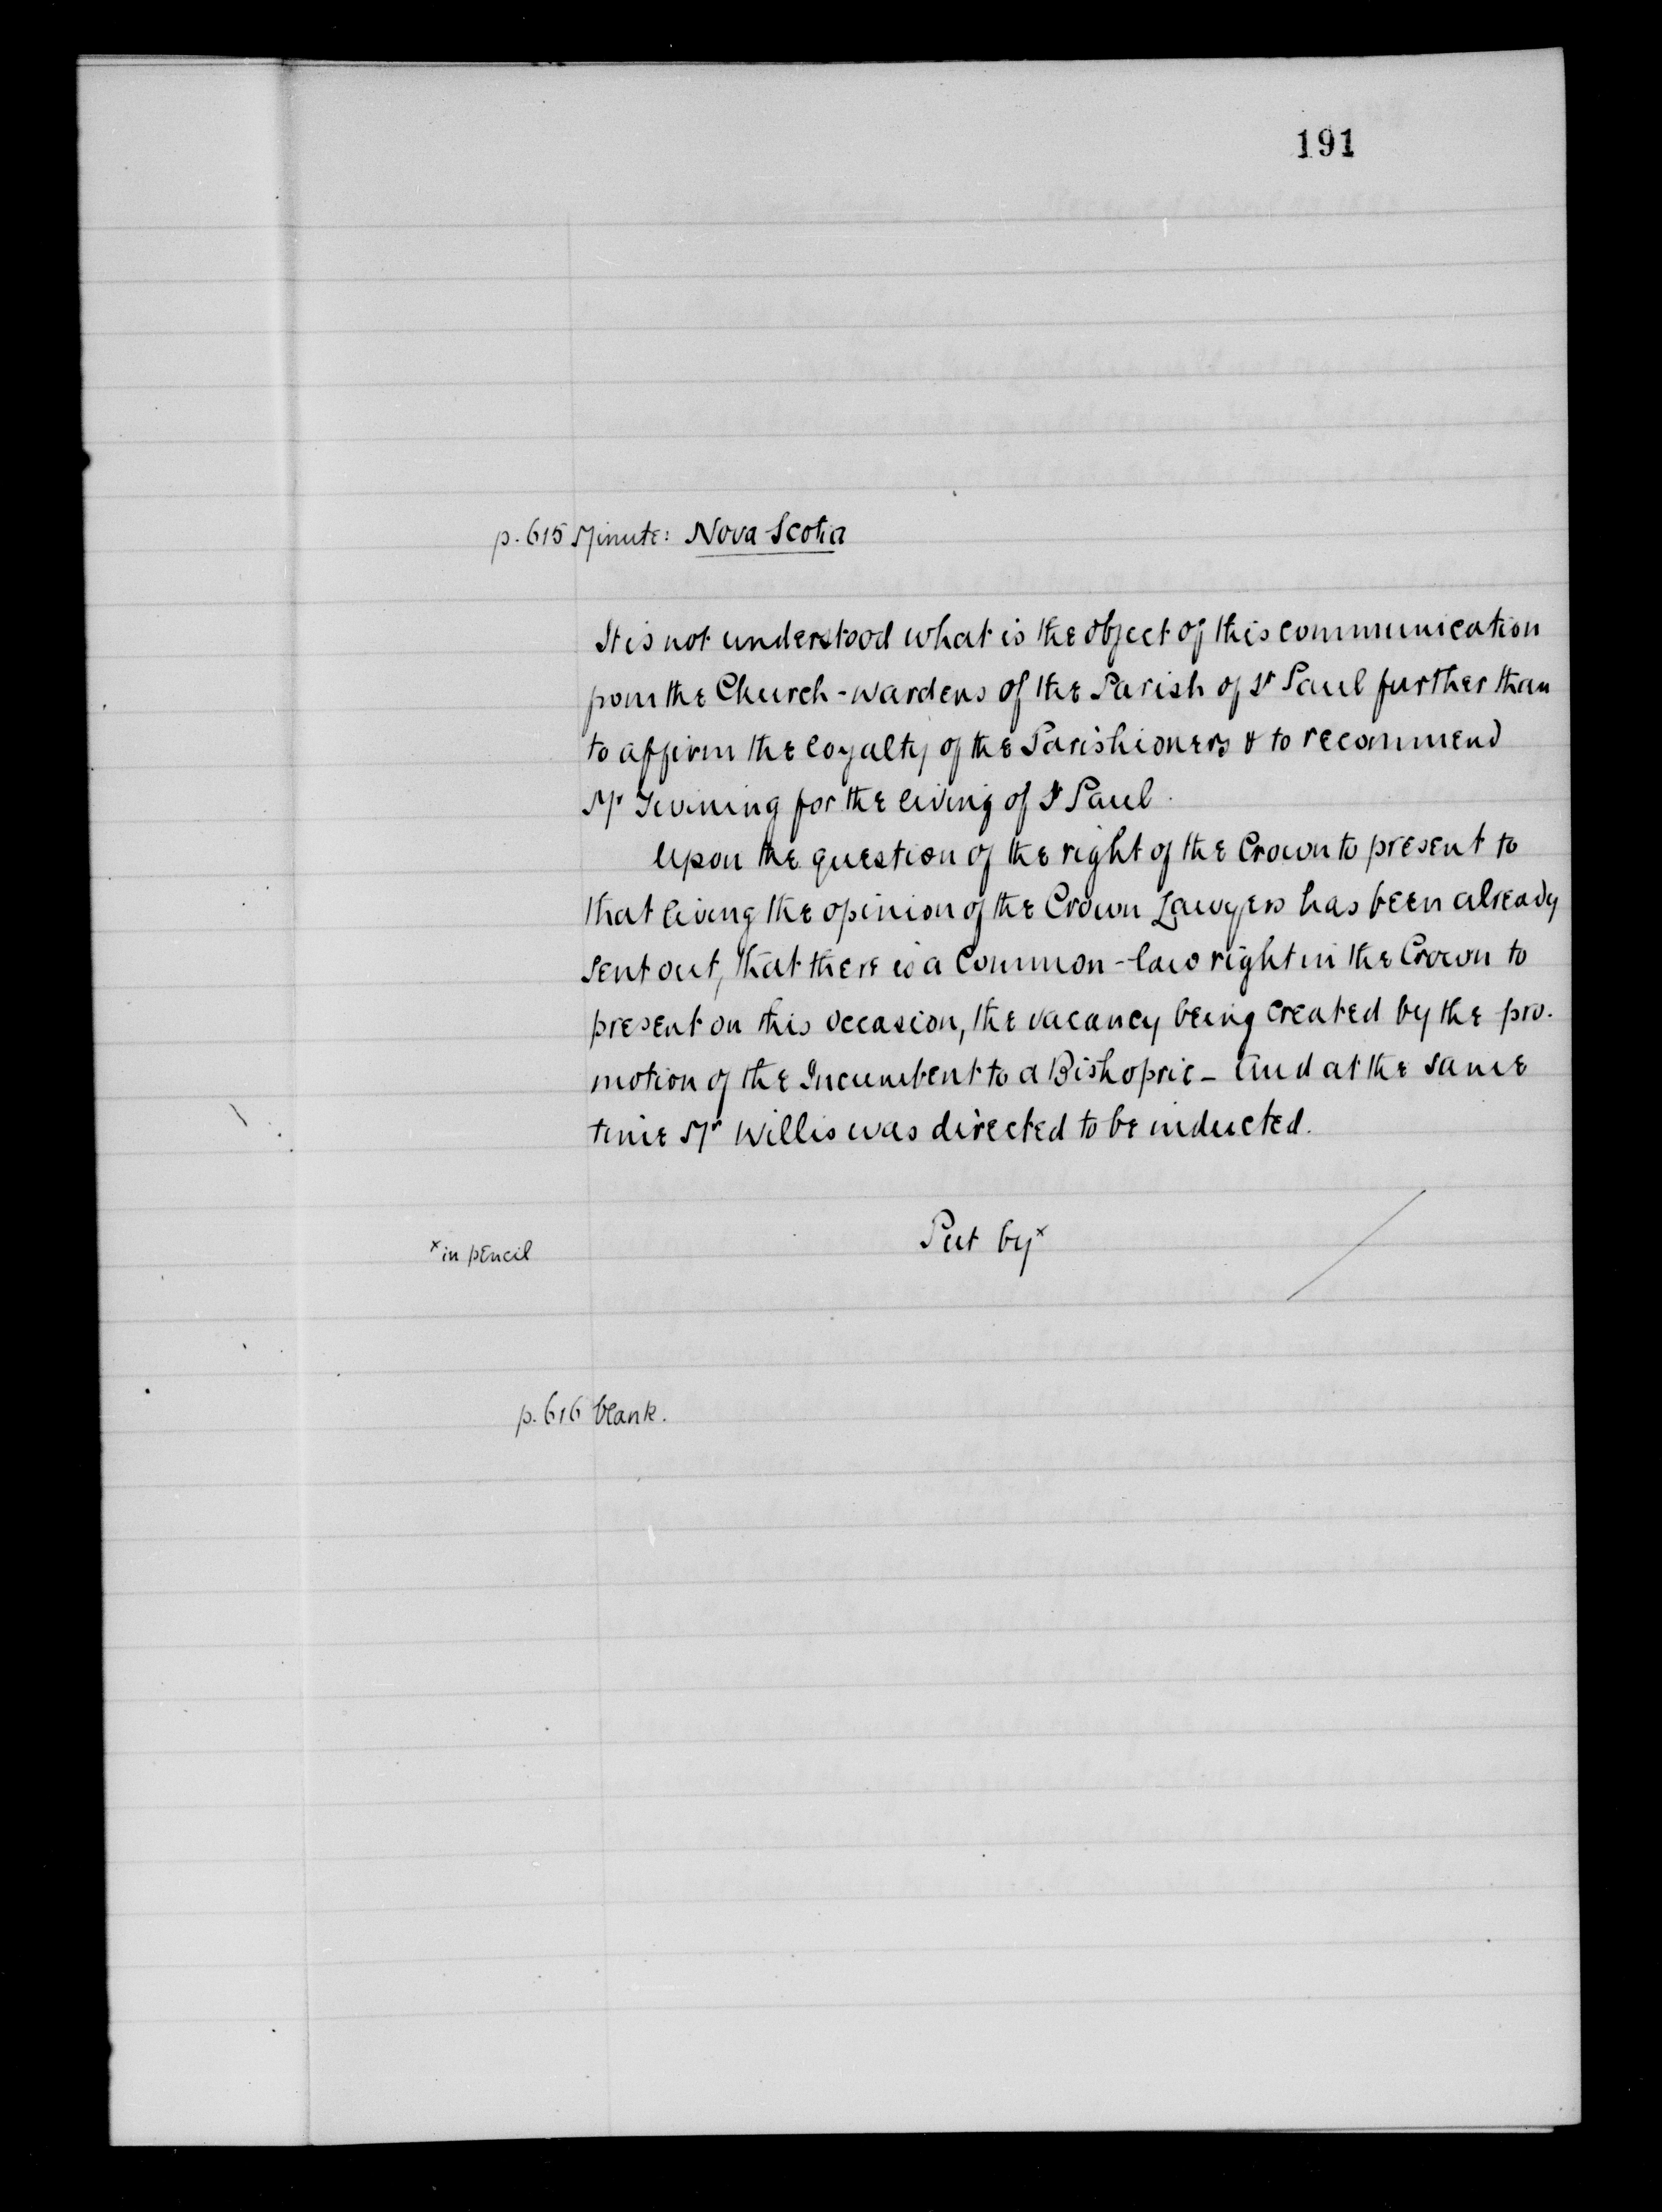 191
p. 615 Minute: Nova Scotia
It is not understood what is the object of this communication
from the Church-wardens of the Parish of St Paul further than
to affirm the loyalty of the Parishioners & to recommend
Mr Twining for the living of St Paul.
Upon the question of the right of the Crown to present to
that living the opinion of the Crown Lawyers has been already
sent out, that there is a Common-law right in the Crown to
present on this occasion, the vacancy being created by the pro-
motion of the Incumbent to a Bishopric – and at the same
time Mr Willis was directed to be inducted.
Put by x
x in pencil
p. 616 blank.